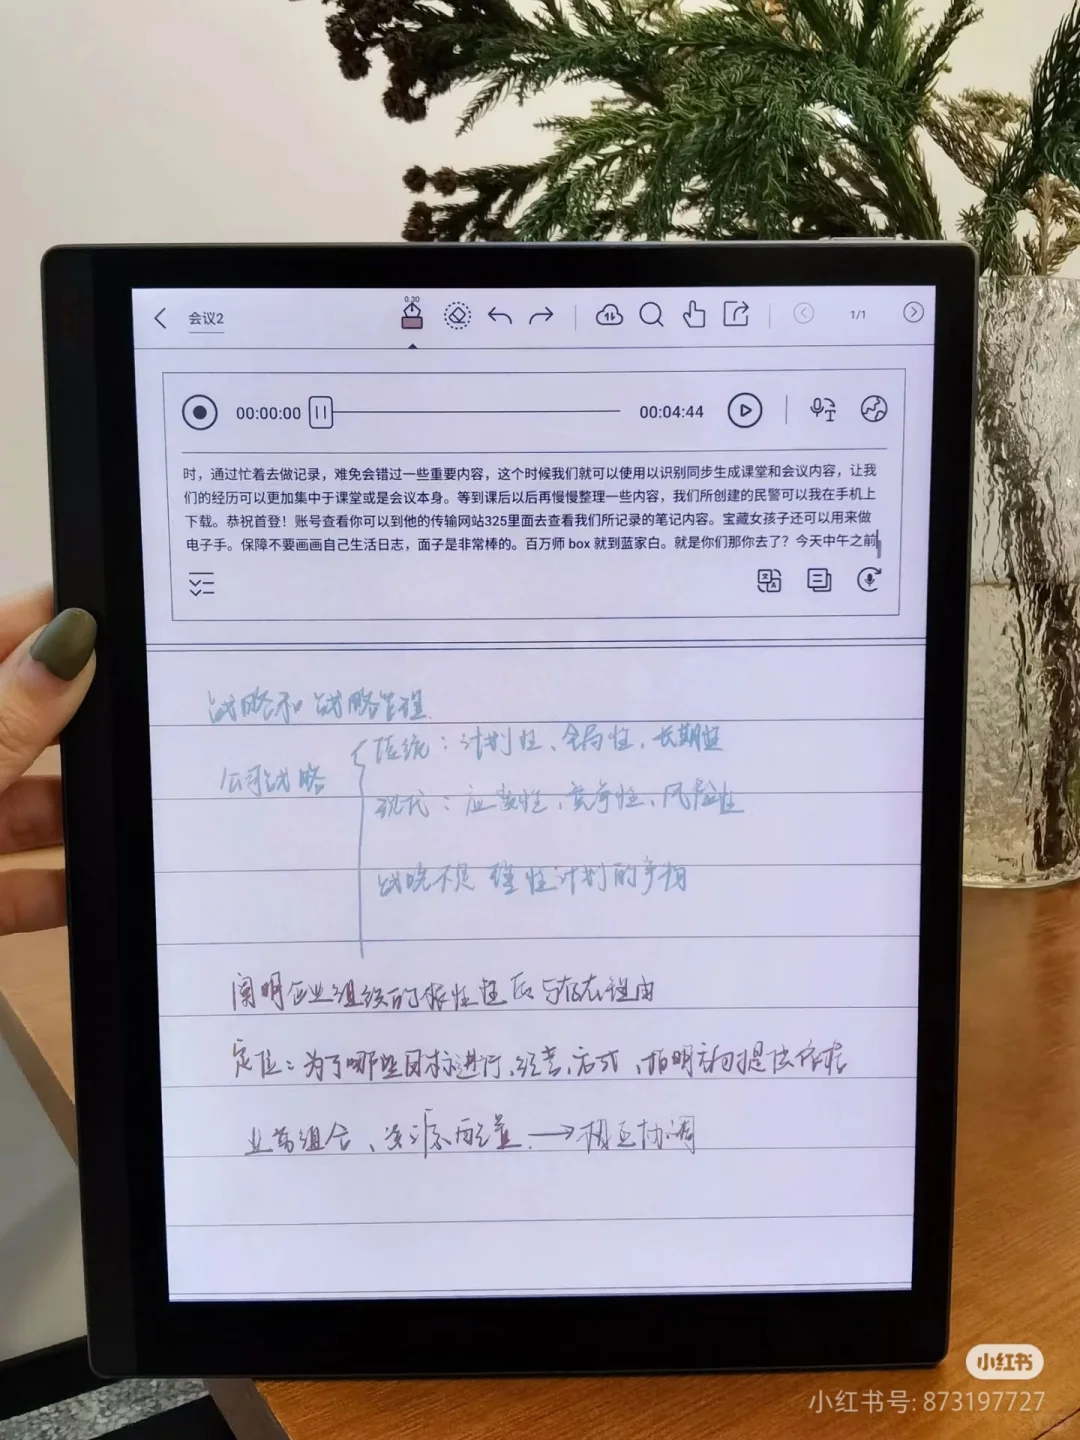 会议2
0.30
1/1
00:00:00
00:04:44
时，通过忙着去做记录，难免会错过一些重要内容，这个时候我们就可以使用以识别同步生成课堂和会议内容，让我
们的经历可以更加集中于课堂或是会议本身。等到课后以后再慢慢整理一些内容，我们所创建的民警可以我在手机上
下载。恭祝首登！账号查看你可以到他的传输网站325里面去查看我们所记录的笔记内容。宝藏女孩子还可以用来做
电子手。保障不要画画自己生活日志，面子是非常棒的。百万师 box 就到蓝家白。就是你们那你去了？今天中午之前
战略和战略管理
公司战略
传统：计划性、全局性、长期性
现代：应变性、竞争性、风险性
战略不是理性计划的产物
阐明企业组织的根性性质与存在理由
定位：为了哪些目标进行、经营、方式、指明方向提供依据
业务组合、资源配置 → 相互协调
小红书
小红书号: 873197727